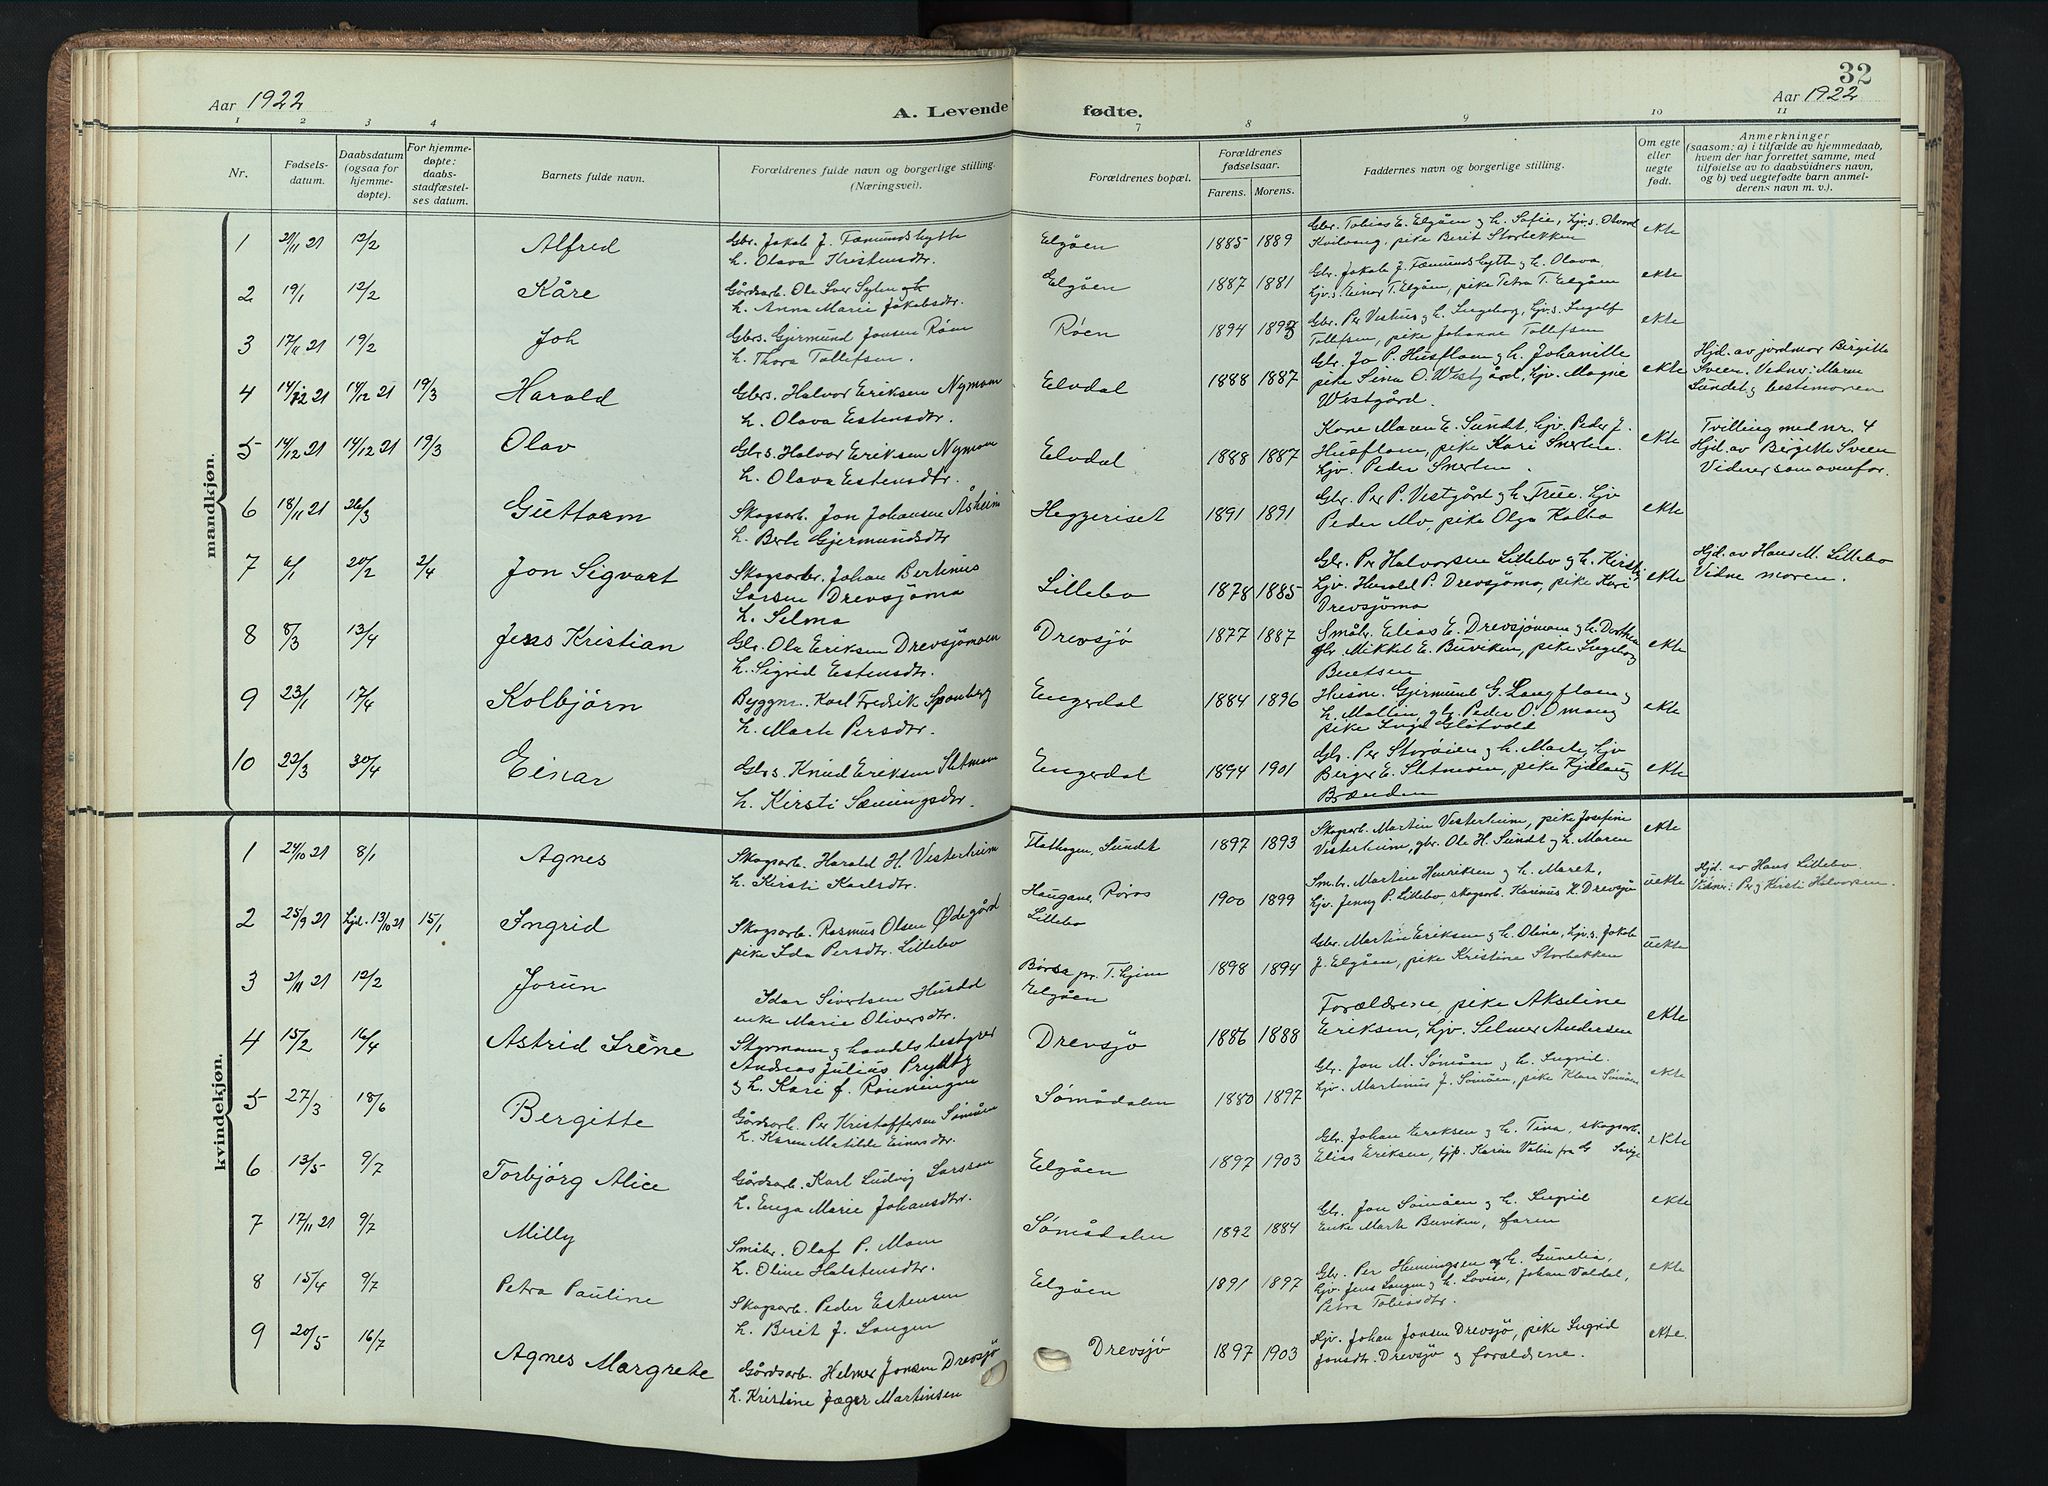 Aar 1922
A. Levende fødte.
32
Aar 1922
1 2 3 4 7 8 9 10 11
Nr.
Fødsels-
datum.
Daabsdatum
(ogsaa for
hjemme-
døpte).
For hjemme-
døpte:
daabs-
stadfæstel-
ses datum.
Barnets fulde navn.
Forældrenes fulde navn og borgerlige stilling.
(Næringsvei).
Forældrenes bopæl.
Forældrenes
fødselsaar.
Farens. Morens.
Faddernes navn og borgerlige stilling.
Om egte
eller
uegte
født.
Anmerkninger
(saasom: a) i tilfælde av hjemmedaab,
hvem der har forrettet samme, med
tilføielse av to daabsvidners navn,
og b) ved uegtefødte barn anmel-
derens navn m. v.).
mandkjøn.
1 21/11 21 12/2 Alfred
Gbr. Jakob J. Fæmundshytte
h. Olava Kristensdtr.
Elgåen 1885 1889
Gbr. Tobias E. Elgåen og h. Sofie, Ujv.s. Olvard
Kvilvang, pike Berit Storbekken
ekte
2 19/1 12/2 Kåre
Gårdsarb. Ole Iver Sylen og
h. Anna Marie Jakobsdtr.
Elgåen 1887 1881
Gbr. Jakob J. Fæmundshytte og h. Olava,
Ujv.s. Einar T. Elgåen, pike Petra T. Elgåen
ekte
3 17/11 21 19/2 Joh
Gbrs. Gjermund Jonsen Røen
h. Thora Tollefsen.
Røen 1894 1893
Gbr. Per Vestus og h. Ingeborg, Ujv.s. Ingolf
Tollefsen, pike Johanne Tollefsen
ekte
4 14/12 21 14/12 21 19/3 Harald
Gbrs. Halvor Eriksen Nymoen
h. Olava Estensdtr.
Elvdal 1888 1887
Gbr. Jo P. Husfloen og h. Johanitte
pike Sina O. Westgård, Ujv. Magne
Westgård.
ekte
Hjd. av jordmor Birgitte
Sveen. Vidner: Maren
Sundet og bestemoren
5 14/12 21 14/12 21 19/3 Olav
Gbrs. Halvor Eriksen Nymoen
h. Olava Estensdtr.
Elvdal 1888 1887
Kone Maren E. Sundt, Ujv. Peder J.
Husfloen, pike Kari Snerten.
Ujv. Peder Snerten.
ekte
Tvilling med nr. 4
Hjd. av Birgitte Sveen
Vidner som ovenfor.
6 18/11 21 26/3 Guttorm
Skogsarb. Jon Johansen Åsheim
h. Berte Gjermundsdtr
Heggeriset 1891 1891
Gbr. Per P. Vestgård og h. True. Ujv
Peder Mo, pike Olga Kolbo
ekte
7 6/1 20/2 2/4 Jon Sigvart
Skogsarbr. Johan Bertinus
Larsen Drevsjömo
h. Selma
Lillebo 1878 1885
Gbr. Per Halvorsen Lillebo og h. Kirsti,
Ujv. Harald P. Drevsjömo, pike Kari
Drevsjömo
ekte
Hjd. av Hans M. Lillebo
Vidne moren.
8 8/3 13/4 Jens Kristian
Gbr. Ole Eriksen Drevsjömoen
h. Sigrid Estensdtr.
Drevsjö 1877 1887
Småbr. Elias E. Drevsjömoen og h. Dorthea
gbr. Mikkel E. Buviken, pike Ingeborg
Bentsen
ekte
9 23/1 17/4 Kolbjörn
Byggm. Karl Fredrik Sponberg
h. Marte Persdtr.
Engerdal 1884 1896
Husm. Gjermund G. Langfloen og
h. Mallin, gbr. Peder O. Omang
pike Inga Glötvold
ekte
10 22/3 30/4 Einar
Gbrs. Knud Eriksen Sletmoen
h. Kirsti Sæmingsdtr.
Engerdal 1894 1901
Gbr. Per Storöien og h. Marte, Ujv
Berger E. Sletmoen, pike Kjellaug
Brænden
ekte
kvindekjøn.
1 24/10 21 8/1 Agnes
Skogsarb. Harald H. Vesterheim
h. Kirsti Karlsdtr.
Flathogen, Sundet 1897 1893
Skogsarb. Martin Vesterheim, pike Josefine
Vesterheim, gbr. Ole H. Sundt og h. Maren
ekte
2 25/9 21 hjd. 13/10 21 15/1 Ingrid
Skogsarb. Rasmus Olsen Ødegård
pike Ida Persdtr. Lillebo
Haugane, Röros
Lillebo 1900 1899
Sm.br. Martin Henriksen og h. Maret,
Ujv. Jenny P. Lillebo, skogsarb. Karinus K. Drevsjö
uekte
Hjd. av Hans Lillebo
Vidner: Per og Kirsti Halvorsen.
3 2/11 21 12/2 Jorun
Idar Sivertsen Husdal
enke Marie Oliversdtr.
Börsa pr. T.hjem
Elgåen 1898 1894
Gbr. Martin Eriksen og h. Oline, Ujv.s. Jakob
J. Elgåen, pike Kristine Storbekken
uekte
4 15/2 16/4 Astrid Iréne
Styrmann og handelsbestyrer
Andreas Julius Prydtz
og h. Kari f. Rønningen
Drevsjö 1886 1888
Forældrene, pike Akseline
Eriksen, Ujv. Selmer Andersen
ekte
5 27/3 18/6 Bergitte
Gårdsarb. Per Kristoffersen Sömåen
h. Karen Matilde Einersdtr.
Sömådalen 1880 1897
Gbr. Jon M. Sömåen og h. Ingrid.
Ujv. Martinus J. Sömåen, pike Klara Sömåen
ekte
6 13/5 9/7 Torbjörg Alice
Gårdsarb. Karl Ludvig Larssen
h. Enga Marie Johansdtr.
Elgåen 1897 1903
Gbr. Johan Eriksen og h. Tina, skogsarb.
Elias Eriksen, hjp. Karin Valin fra
ekte
7 17/11 21 9/7 Milly
Småbr. Olaf P. Moen
h. Oline Halstensdtr.
Sömådalen 1892 1884
Gbr. Jon Sömåen og h. Ingrid
Enke Marte Buviken, faren
ekte
8 15/4 9/7 Petra Pauline
Skogsarb. Peder Estensen
h. Berit J. Langen
Elgåen 1891 1897
Gbr. Per Henningsen og h. Gunelia,
Ujv. Jens Langen og h. Lovise, Johan Valdal,
Petra Tobiasdtr.
ekte
9 20/5 16/7 Agnes Margrete
Gårdsarb. Helmer Jonsen Drevsjö
h. Kristine Jæger Martinsen
Drevsjö 1897 1903
Ujv. Johan Jonsen Drevsjö, pike Ingrid
Jonsdtr. Drevsjö og forældrene.
ekte.